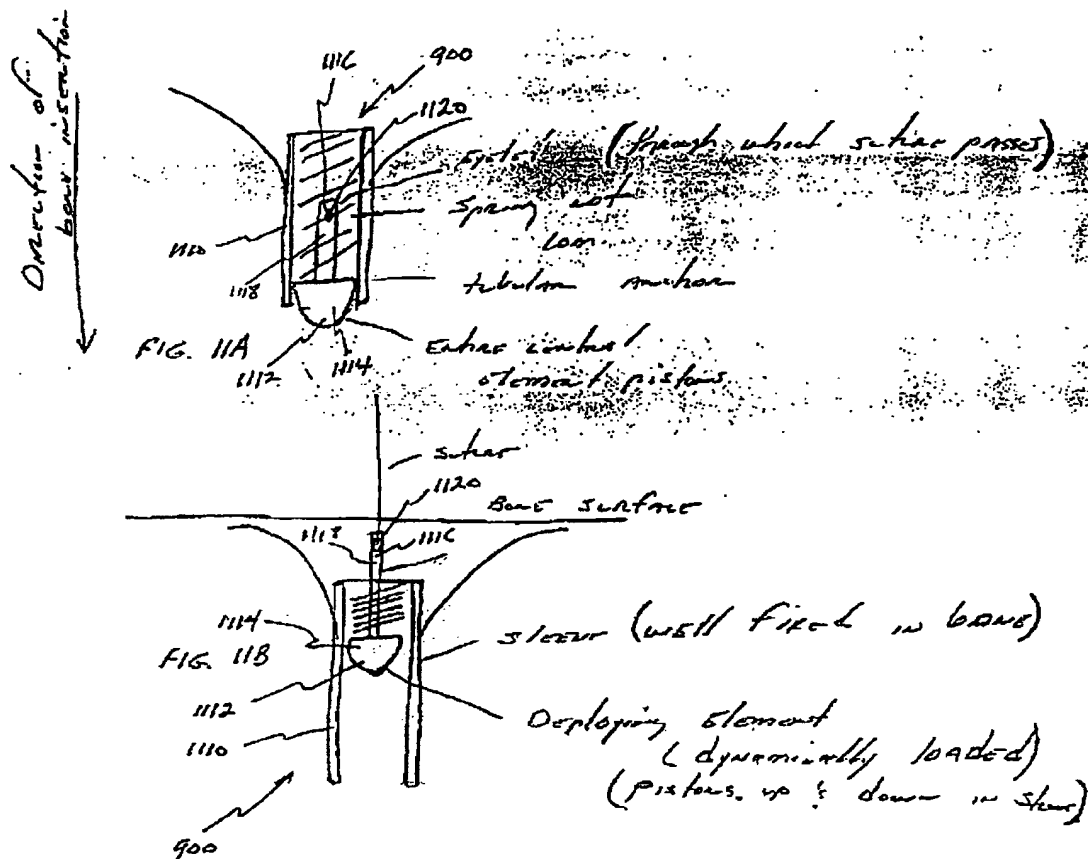 Direction of
bone insertion
1116
900
1120
Eyelet (through which suture passes)
Spring not
1110
1118
tubular anchor
FIG. 11A
1112
1114
Entire central
element pistons
suture
1120
Bone surface
1118
1116
1114
Sleeve (well fixed in bone)
FIG. 11B
1112
Deploying Element
1110
(dynamically loaded)
(pistons up & down in sleeve)
900